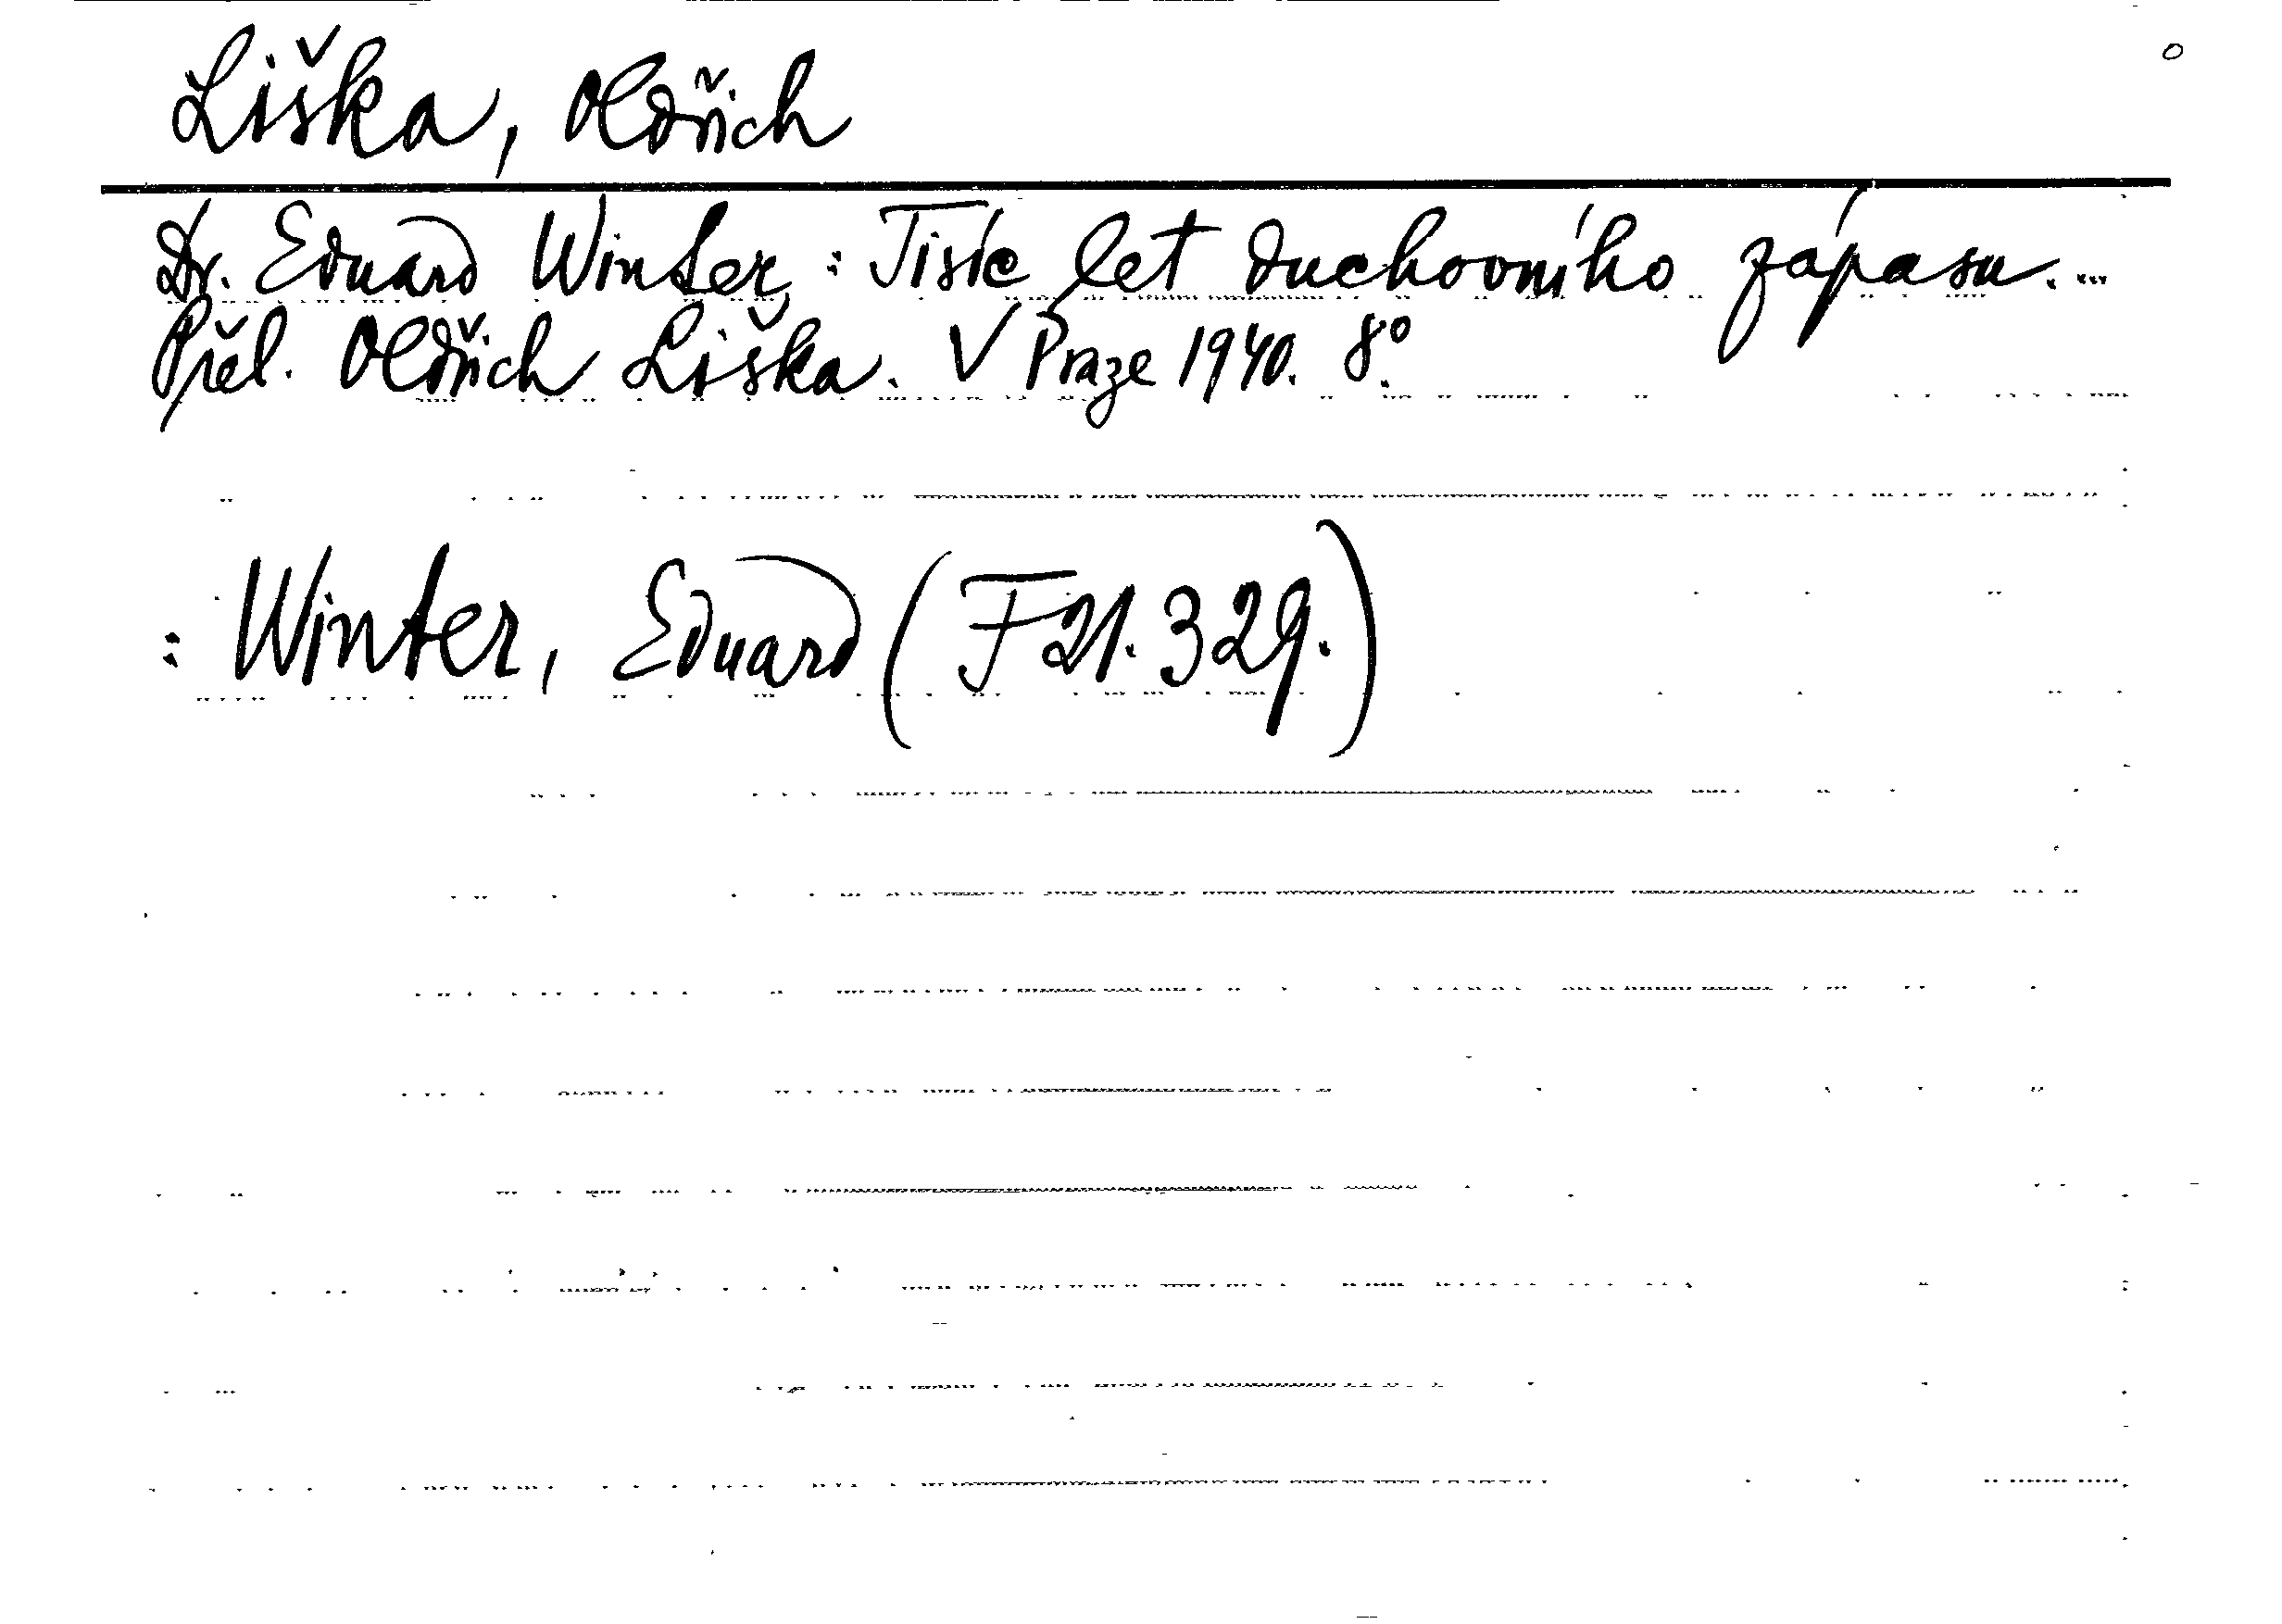 Liška, Oldřich
Dr. Eduard Winter: Tisíc let duchovního zápasu. ...
Přel. Oldřich Liška. V Praze 1940. 8°.
: Winter, Eduard (F 21.329.)